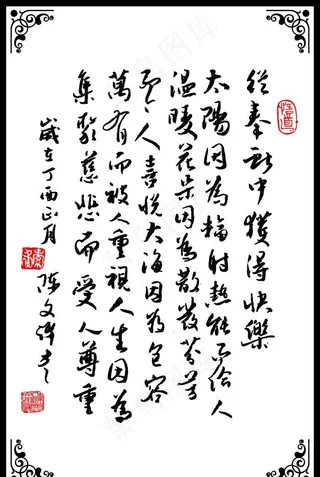 從奉獻中獲得快樂
太陽因為輻射熱能而給人
溫暖花朵因為散發芬芳
而令人喜悅大海因為包容
萬有而被人重視人生因為
集聚慈悲而受人尊重
歲在丁酉正月
陈文